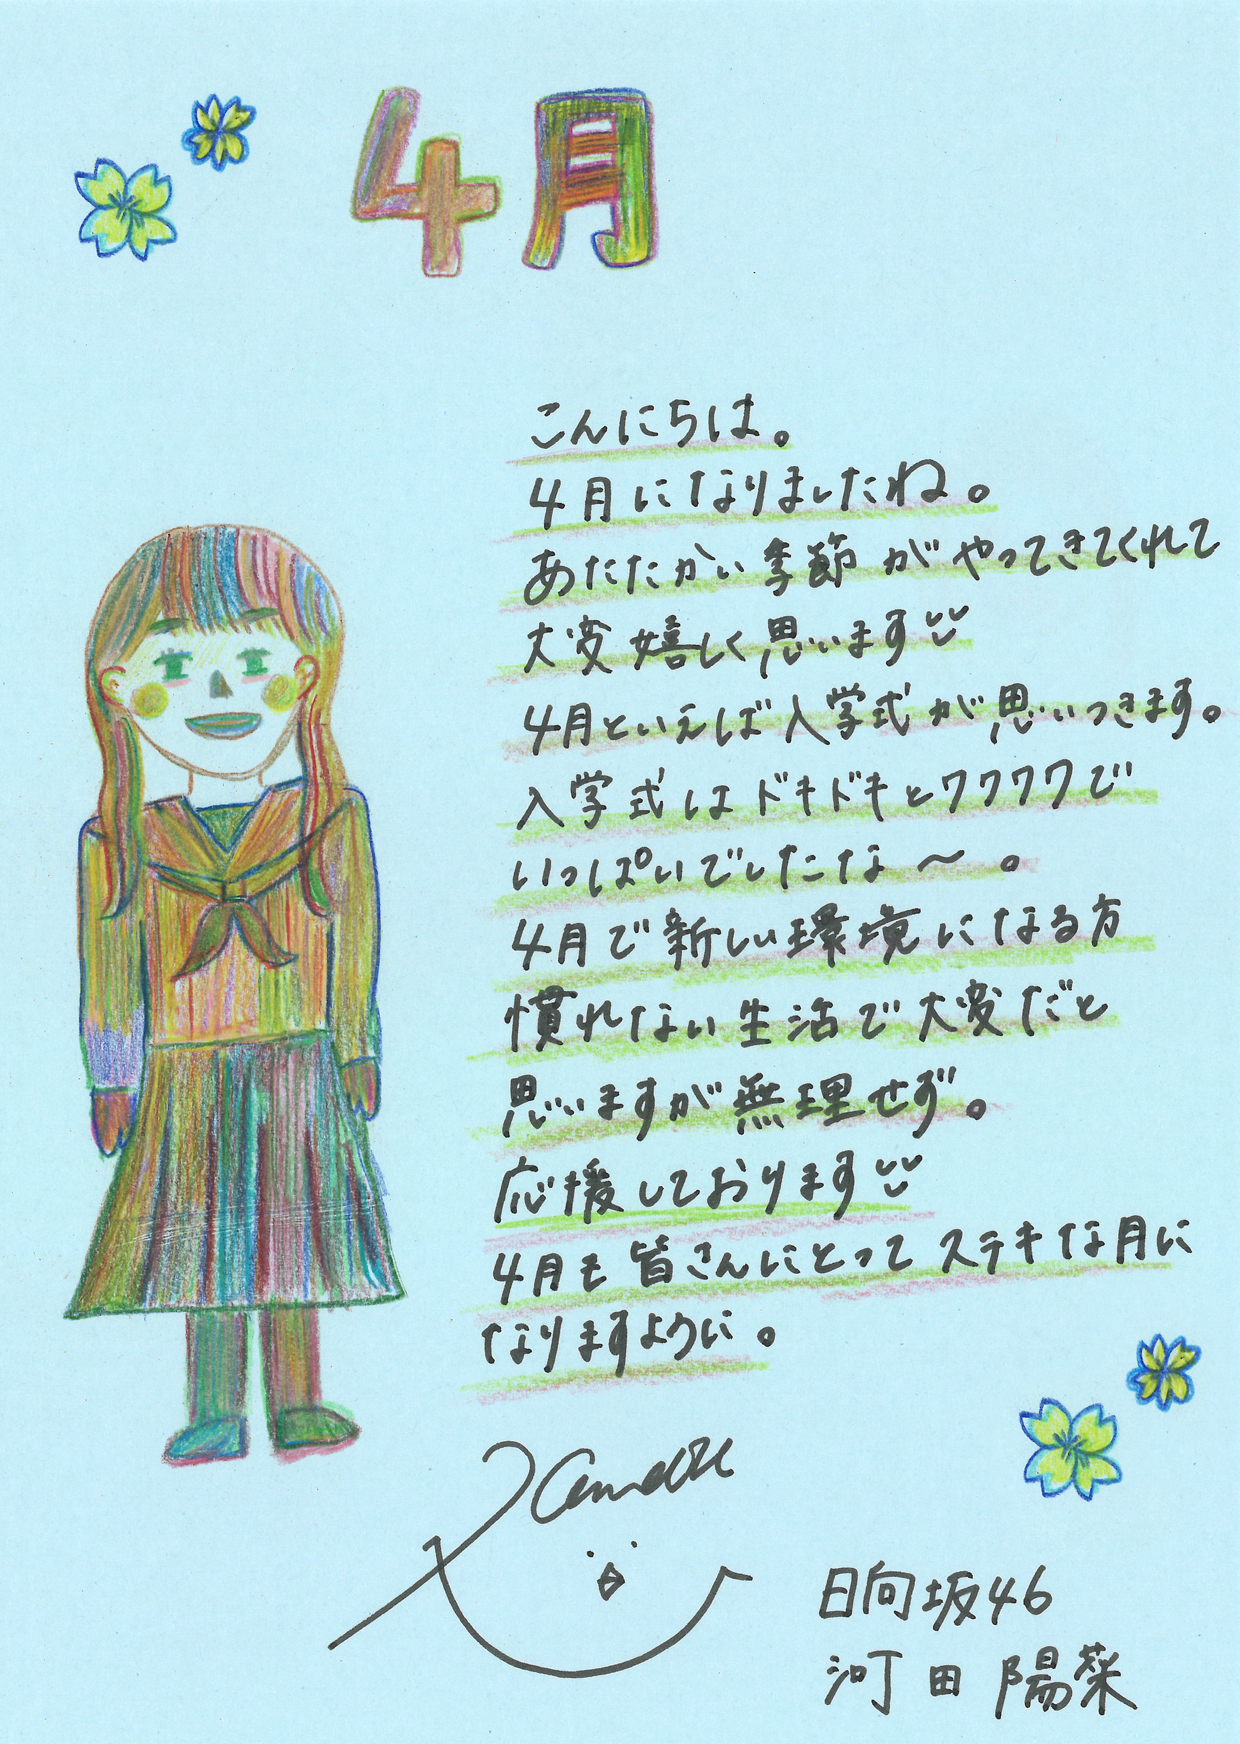 4月
こんにちは。
4月になりましたね。
あたたかい季節がやってきてくれて
大変嬉しく思います
4月といえば入学式が思いつきます。
入学式はドキドキとワクワクで
いっぱいでしたな〜。
4月で新しい環境になる方
慣れない生活で大変だと
思いますが無理せず。
応援しております
4月も皆さんにとってステキな月に
なりますように。
日向坂46
河田陽菜